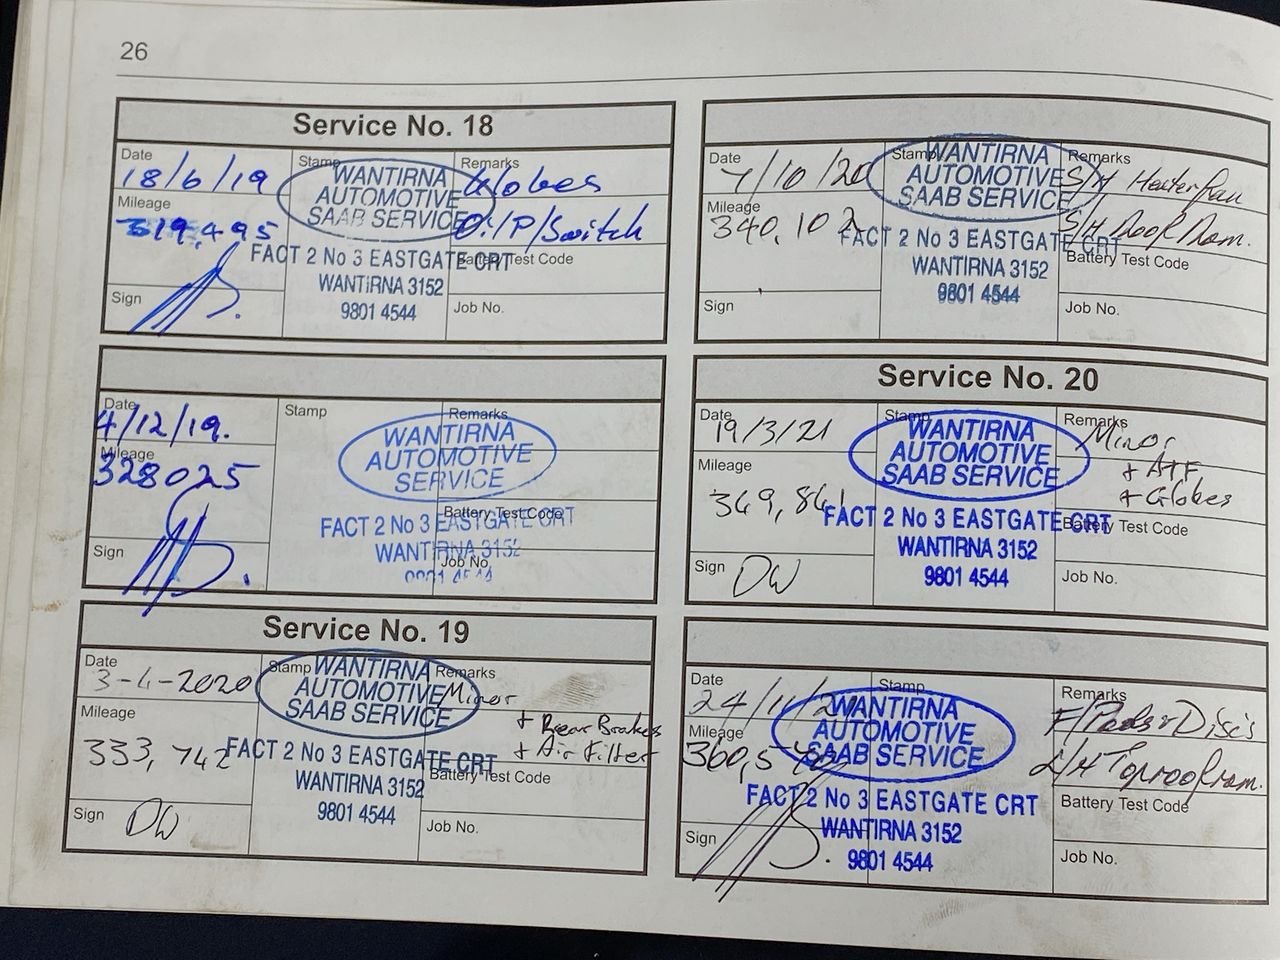 26
Service No. 18
Date
18/6/19
Mileage
319,495
Sign
Stamp
WANTIRNA
AUTOMOTIVE
SAAB SERVICE
FACT 2 No 3 EASTGATE CRT
WANTIRNA 3152
9801 4544
Remarks
Globes
Oil/P/Switch
Battery Test Code
Job No.
Date
4/12/19.
Mileage
328025
Sign
Stamp
WANTIRNA
AUTOMOTIVE
SERVICE
FACT 2 No 3 EASTGATE CRT
WANTIRNA 3152
9801 4544
Remarks
Battery Test Code
Job No.
Service No. 19
Date
3-4-2020
Mileage
333,742
Sign
DW
Stamp
WANTIRNA
AUTOMOTIVE
SAAB SERVICE
FACT 2 No 3 EASTGATE CRT
WANTIRNA 3152
9801 4544
Remarks
Minor
+ Rear Brakes
+ Air Filter
Battery Test Code
Job No.
Date
7/10/20
Mileage
340,102
Sign
Stamp
WANTIRNA
AUTOMOTIVE
SAAB SERVICE
FACT 2 No 3 EASTGATE CRT
WANTIRNA 3152
9801 4544
Remarks
S/H Heater Fan
S/H Roof
Battery Test Code
Job No.
Service No. 20
Date
19/3/21
Mileage
Sign
DW
Stamp
WANTIRNA
AUTOMOTIVE
SAAB SERVICE
FACT 2 No 3 EASTGATE CRT
WANTIRNA 3152
9801 4544
Remarks
Minor
+ ATF
+ Globes
Battery Test Code
Job No.
Date
24/11/21
Mileage
Sign
Stamp
WANTIRNA
AUTOMOTIVE
SAAB SERVICE
FACT 2 No 3 EASTGATE CRT
WANTIRNA 3152
9801 4544
Remarks
F/Pads & Discs
Battery Test Code
Job No.